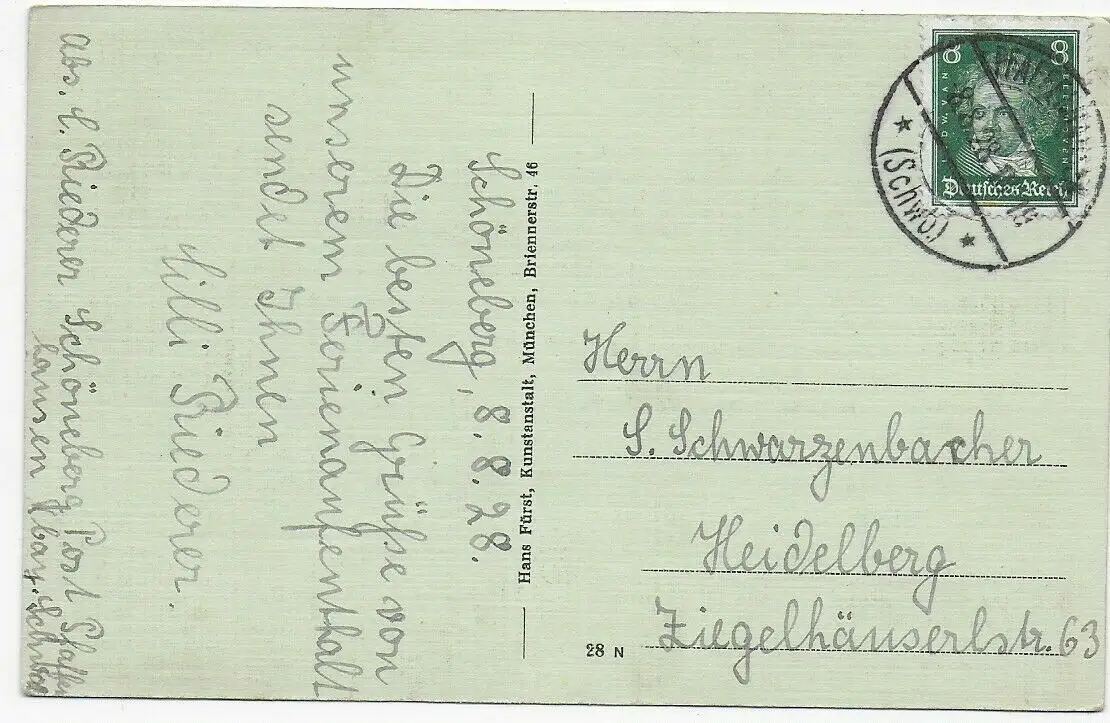 Schöneberg, 8. 8. 28.
Die besten Grüße von
unserem Ferienaufenthalt
sendet Ihnen
Lilli Riederer.
Abs. L. Riederer Schöneberg Post Pfaffen
hausen / bay. Schwab
Hans Fürst, Kunstanstalt, München, Briennerstr. 46
8 8
Deutsches Reich
8.8.28
(Schwb)
Herrn
S. Schwarzenbacher
Heidelberg
Ziegelhäuserlstr. 63
28 N